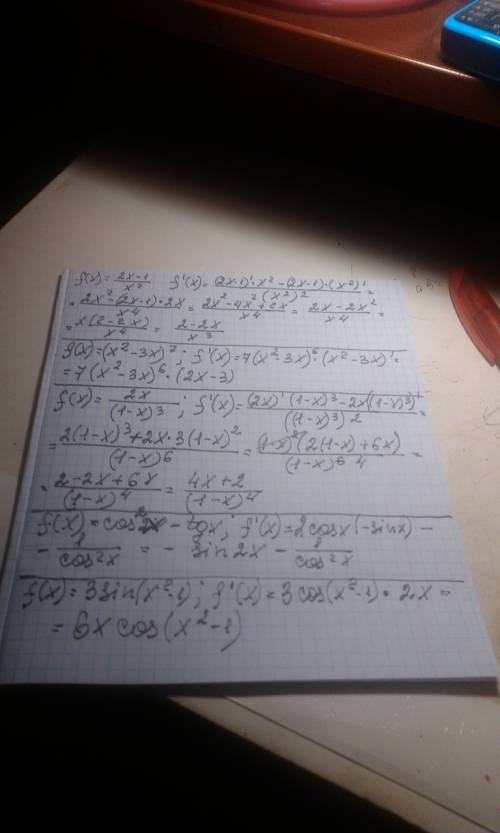 f(x)=\frac{2x-1}{x^2} f'(x)=\frac{(2x-1)'·x^2-(2x-1)·(x^2)'}{(x^2)^2}=
=\frac{2x^2-(2x-1)·2x}{x^4}=\frac{2x^2-4x^2+2x}{x^4}=\frac{2x-2x^2}{x^4}=
=\frac{x(2-2x)}{x^4}=\frac{2-2x}{x^3}
f(x)=(x^2-3x)^7; f'(x)=7(x^2-3x)^6·(x^2-3x)'=
=7(x^2-3x)^6·(2x-3)
f(x)=\frac{2x}{(1-x)^3}; f'(x)=\frac{(2x)'(1-x)^3-2x((1-x)^3)'}{((1-x)^3)^2}=
=\frac{2(1-x)^3+2x·3(1-x)^2}{(1-x)^6}=\frac{(1-x)^2(2(1-x)+6x)}{(1-x)^{6 4}}=
=\frac{2-2x+6x}{(1-x)^4}=\frac{4x+2}{(1-x)^4}
f(x)=cos^2x-tgx; f'(x)=2cosx(-sinx)-
-\frac{1}{cos^2x}=-sin2x-\frac{1}{cos^2x}
f(x)=3sin(x^2-1); f'(x)=3cos(x^2-1)·2x=
=6xcos(x^2-1)